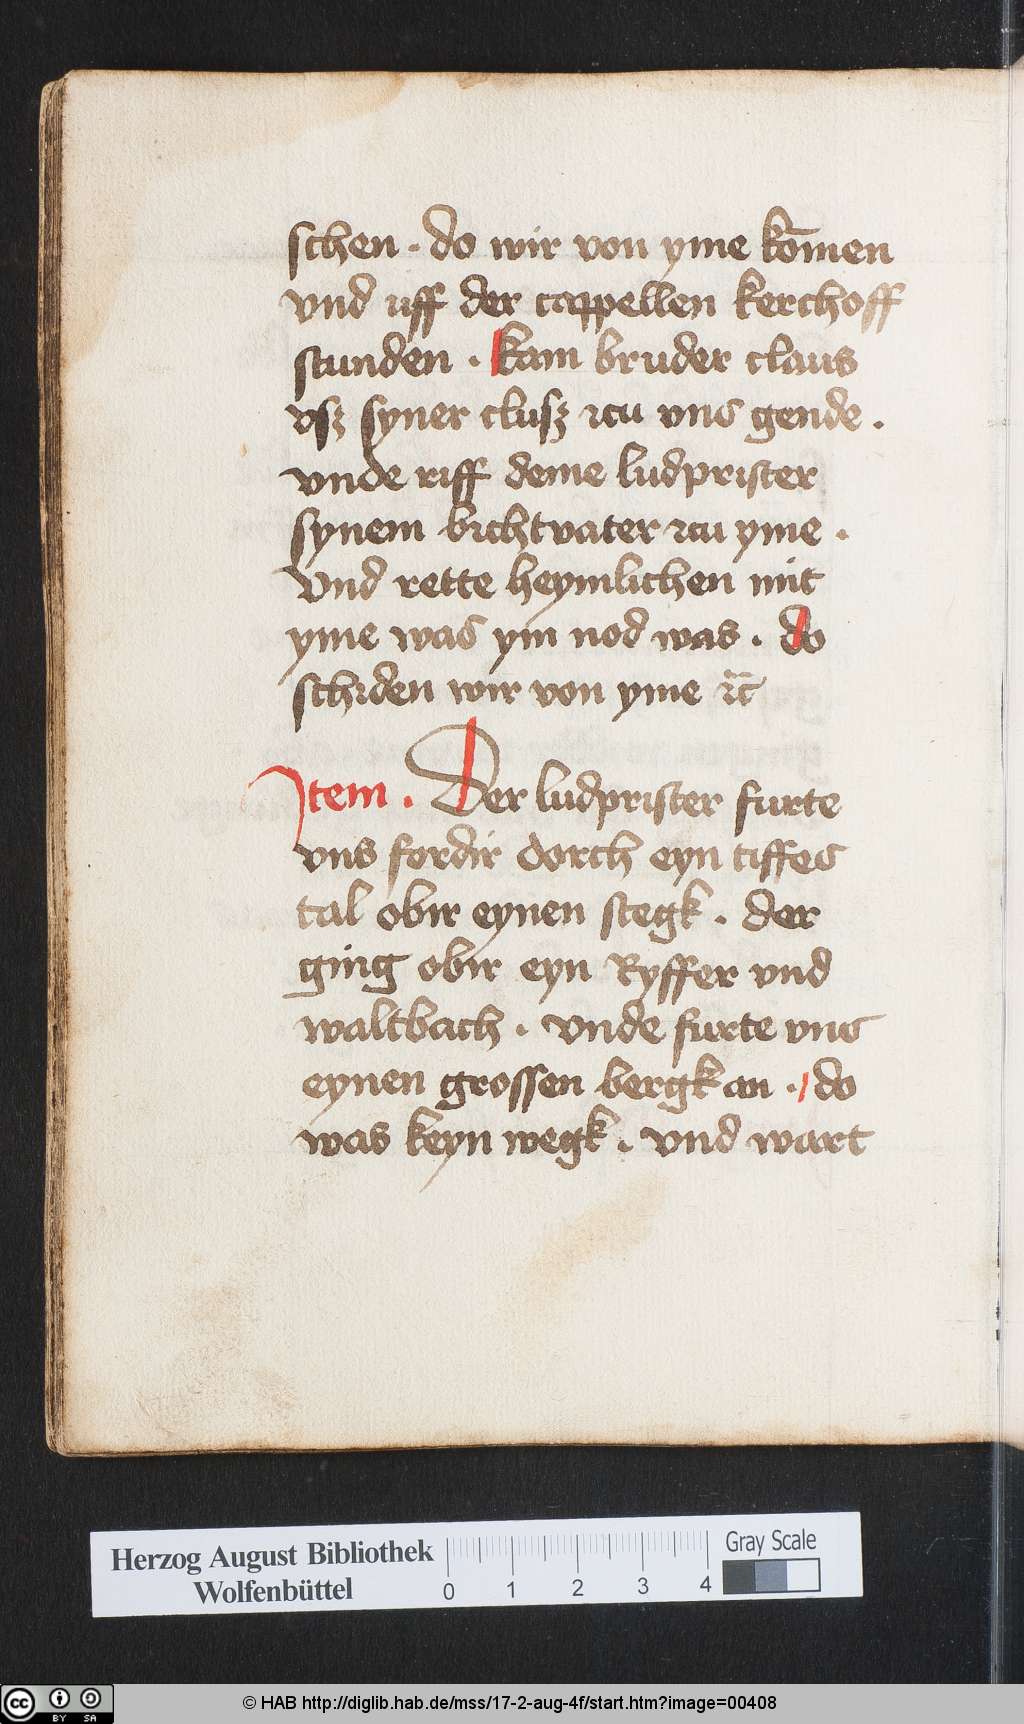 schen . do wir von yme kōmen
vnd uff der cappellen kerchoff
stunden . kam bruder claus
vsz syner clusz zcu vns gende .
vnde riff deme ludprister
synem bichtvater zcu yme .
Vnd rette heymlichen mit
yme was ym nod was . do
schiden wir von yme zc̃
Item . Der ludprister furte
vns fordir dorch eyn tiffes
tal obir eynen stegk . der
ging obir eyn Ryffer vnd
waltbach . vnde furte vns
eynen grossen bergk an . do
was keyn wegk . vnd wart
Herzog August Bibliothek
Wolfenbüttel
0 1 2 3 4
Gray Scale
cc BY SA
© HAB http://diglib.hab.de/mss/17-2-aug-4f/start.htm?image=00408